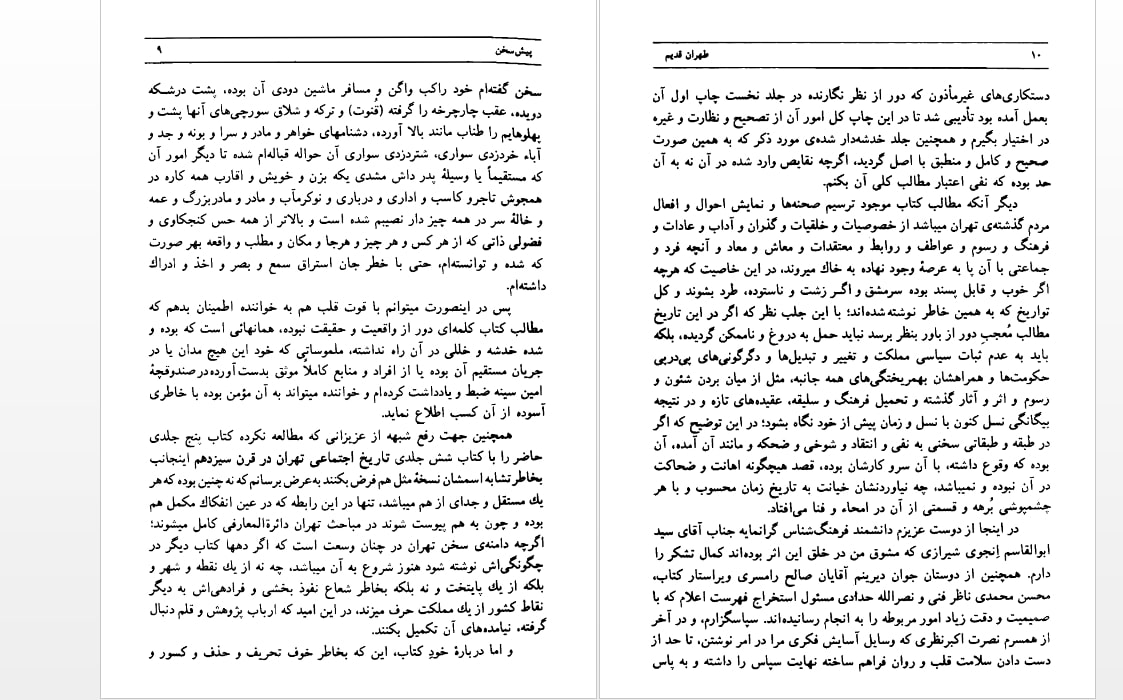 پیش‌سخن ۹
سخن گفته‌ام خود راکب واگن و مسافر ماشین دودی آن بوده، پشت درشکه
دویده، عقب چارچرخه را گرفته (قُنوت) و ترکه و شلاق سورچی‌های آنها پشت و
پهلوهایم را طناب مانند بالا آورده، دشنامهای خواهر و مادر و سرا و بونه و جد و
آباء خردزدی سواری، شتردزدی سواری آن حواله قباله‌ام شده تا دیگر امور آن
که مستقیماً یا وسیلهٔ پدر داش مشدی یکه بزن و خویش و اقارب همه کاره در
همجوش تاجرو کاسب و اداری و درباری و نوکرمآب و مادر و مادربزرگ و عمه
و خالهٔ سر در همه چیز دار نصیبم شده است و بالاتر از همه حس کنجکاوی و
فضولی ذاتی که از هر کس و هر چیز و هرجا و مکان و مطلب و واقعه بهر صورت
که شده و توانسته‌ام، حتی با خطر جان استراق سمع و بصر و اخذ و ادراك
داشته‌ام.
پس در اینصورت میتوانم با قوت قلب هم به خواننده اطمینان بدهم که
مطالب کتاب کلمه‌ای دور از واقعیت و حقیقت نبوده، همانهائی است که بوده و
شده خدشه و خللی در آن راه نداشته، ملموساتی که خود این هیچ مدان یا در
جریان مستقیم آن بوده یا از افراد و منابع کاملاً موثق بدست آورده در صندوقچهٔ
امین سینه ضبط و یادداشت کرده‌ام و خواننده میتواند به آن مؤمن بوده با خاطری
آسوده از آن کسب اطلاع نماید.
همچنین جهت رفع شبهه از عزیزانی که مطالعه نکرده کتاب پنج جلدی
حاضر را با کتاب شش جلدی تاریخ اجتماعی تهران در قرن سیزدهم اینجانب
بخاطر تشابه اسمشان نسخهٔ مثل هم فرض بکنند به عرض برسانم که نه چنین بوده که هر
یك مستقل و جدای از هم میباشد، تنها در این رابطه که در عین انفکاك مکمل هم
بوده و چون به هم پیوست شوند در مباحث تهران دائرةالمعارفی کامل میشوند؛
اگرچه دامنه‌ی سخن تهران در چنان وسعت است که اگر دهها کتاب دیگر در
چگونگی‌اش نوشته شود هنوز شروع به آن میباشد، چه نه از یك نقطه و شهر و
بلکه از یك پایتخت و نه بلکه بخاطر شعاع نفوذ بخشی و فرادهی‌اش به دیگر
نقاط کشور از یك مملکت حرف میزند، در این امید که ارباب پژوهش و قلم دنبال
گرفته، نیامده‌های آن تکمیل بکنند.
و اما دربارهٔ خودِ کتاب، این که بخاطر خوف تحریف و حذف و کسور و
۱۰ طهران قدیم
دستکاری‌های غیرمأذون که دور از نظر نگارنده در جلد نخست چاپ اول آن
بعمل آمده بود تأدیبی شد تا در این چاپ کل امور آن از تصحیح و نظارت و غیره
در اختیار بگیرم و همچنین جلد خدشه‌دار شده‌ی مورد ذکر که به همین صورت
صحیح و کامل و منطبق با اصل گردید، اگرچه نقایص وارد شده در آن نه به آن
حد بوده که نفی اعتبار مطالب کلی آن بکنم.
دیگر آنکه مطالب کتاب موجود ترسیم صحنه‌ها و نمایش احوال و افعال
مردم گذشته‌ی تهران میباشد از خصوصیات و خلقیات و گذران و آداب و عادات و
فرهنگ و رسوم و عواطف و روابط و معتقدات و معاش و معاد و آنچه فرد و
جماعتی با آن پا به عرصهٔ وجود نهاده به خاك میروند، در این خاصیت که هرچه
اگر خوب و قابل پسند بوده سرمشق و اگر زشت و ناستوده، طرد بشوند و کل
تواریخ که به همین خاطر نوشته شده‌اند؛ با این جلب نظر که اگر در این تاریخ
مطالب مُعجبِ دور از باور بنظر برسد نباید حمل به دروغ و ناممکن گردیده، بلکه
باید به عدم ثبات سیاسی مملکت و تغییر و تبدیل‌ها و دگرگونی‌های پی‌درپی
حکومت‌ها و همراهشان بهمریختگی‌های همه جانبه، مثل از میان بردن شئون و
رسوم و اثر و آثار گذشته و تحمیل فرهنگ و سلیقه، عقیده‌های تازه و در نتیجه
بیگانگی نسل کنون با نسل و زمان پیش از خود نگاه بشود؛ در این توضیح که اگر
در طبقه و طبقاتی سخنی به نفی و انتقاد و شوخی و ضحکه و مانند آن آمده، آن
بوده که وقوع داشته، با آن سرو کارشان بوده، قصد هیچگونه اهانت و ضحاکت
در آن نبوده و نمیباشد، چه نیاوردنشان خیانت به تاریخ زمان محسوب و با هر
چشمپوشی بُرهه و قسمتی از آن در امحاء و فنا می‌افتاد.
در اینجا از دوست عزیزم دانشمند فرهنگ‌شناس گرانمایه جناب آقای سید
ابوالقاسم اِنجوی شیرازی که مشوق من در خلق این اثر بوده‌اند کمال تشکر را
دارم. همچنین از دوستان جوان دیرینم آقایان صالح رامسری ویراستار کتاب،
محسن محمدی ناظر فنی و نصرالله حدادی مسئول استخراج فهرست اعلام که با
صمیمیت و دقت زیاد امور مربوطه را به انجام رسانیده‌اند. سپاسگزارم، و در آخر
از همسرم نصرت اکبرنظری که وسایل آسایش فکری مرا در امر نوشتن، تا حد از
دست دادن سلامت قلب و روان فراهم ساخته نهایت سپاس را داشته و به پاس